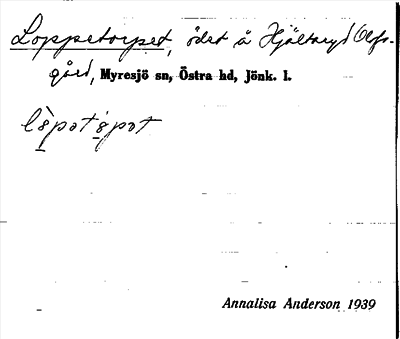 Loppetorpet, ödet å Hjältaryd Olfs-
gård, Myresjö sn, Östra hd, Jönk. l.
Annalisa Anderson 1939